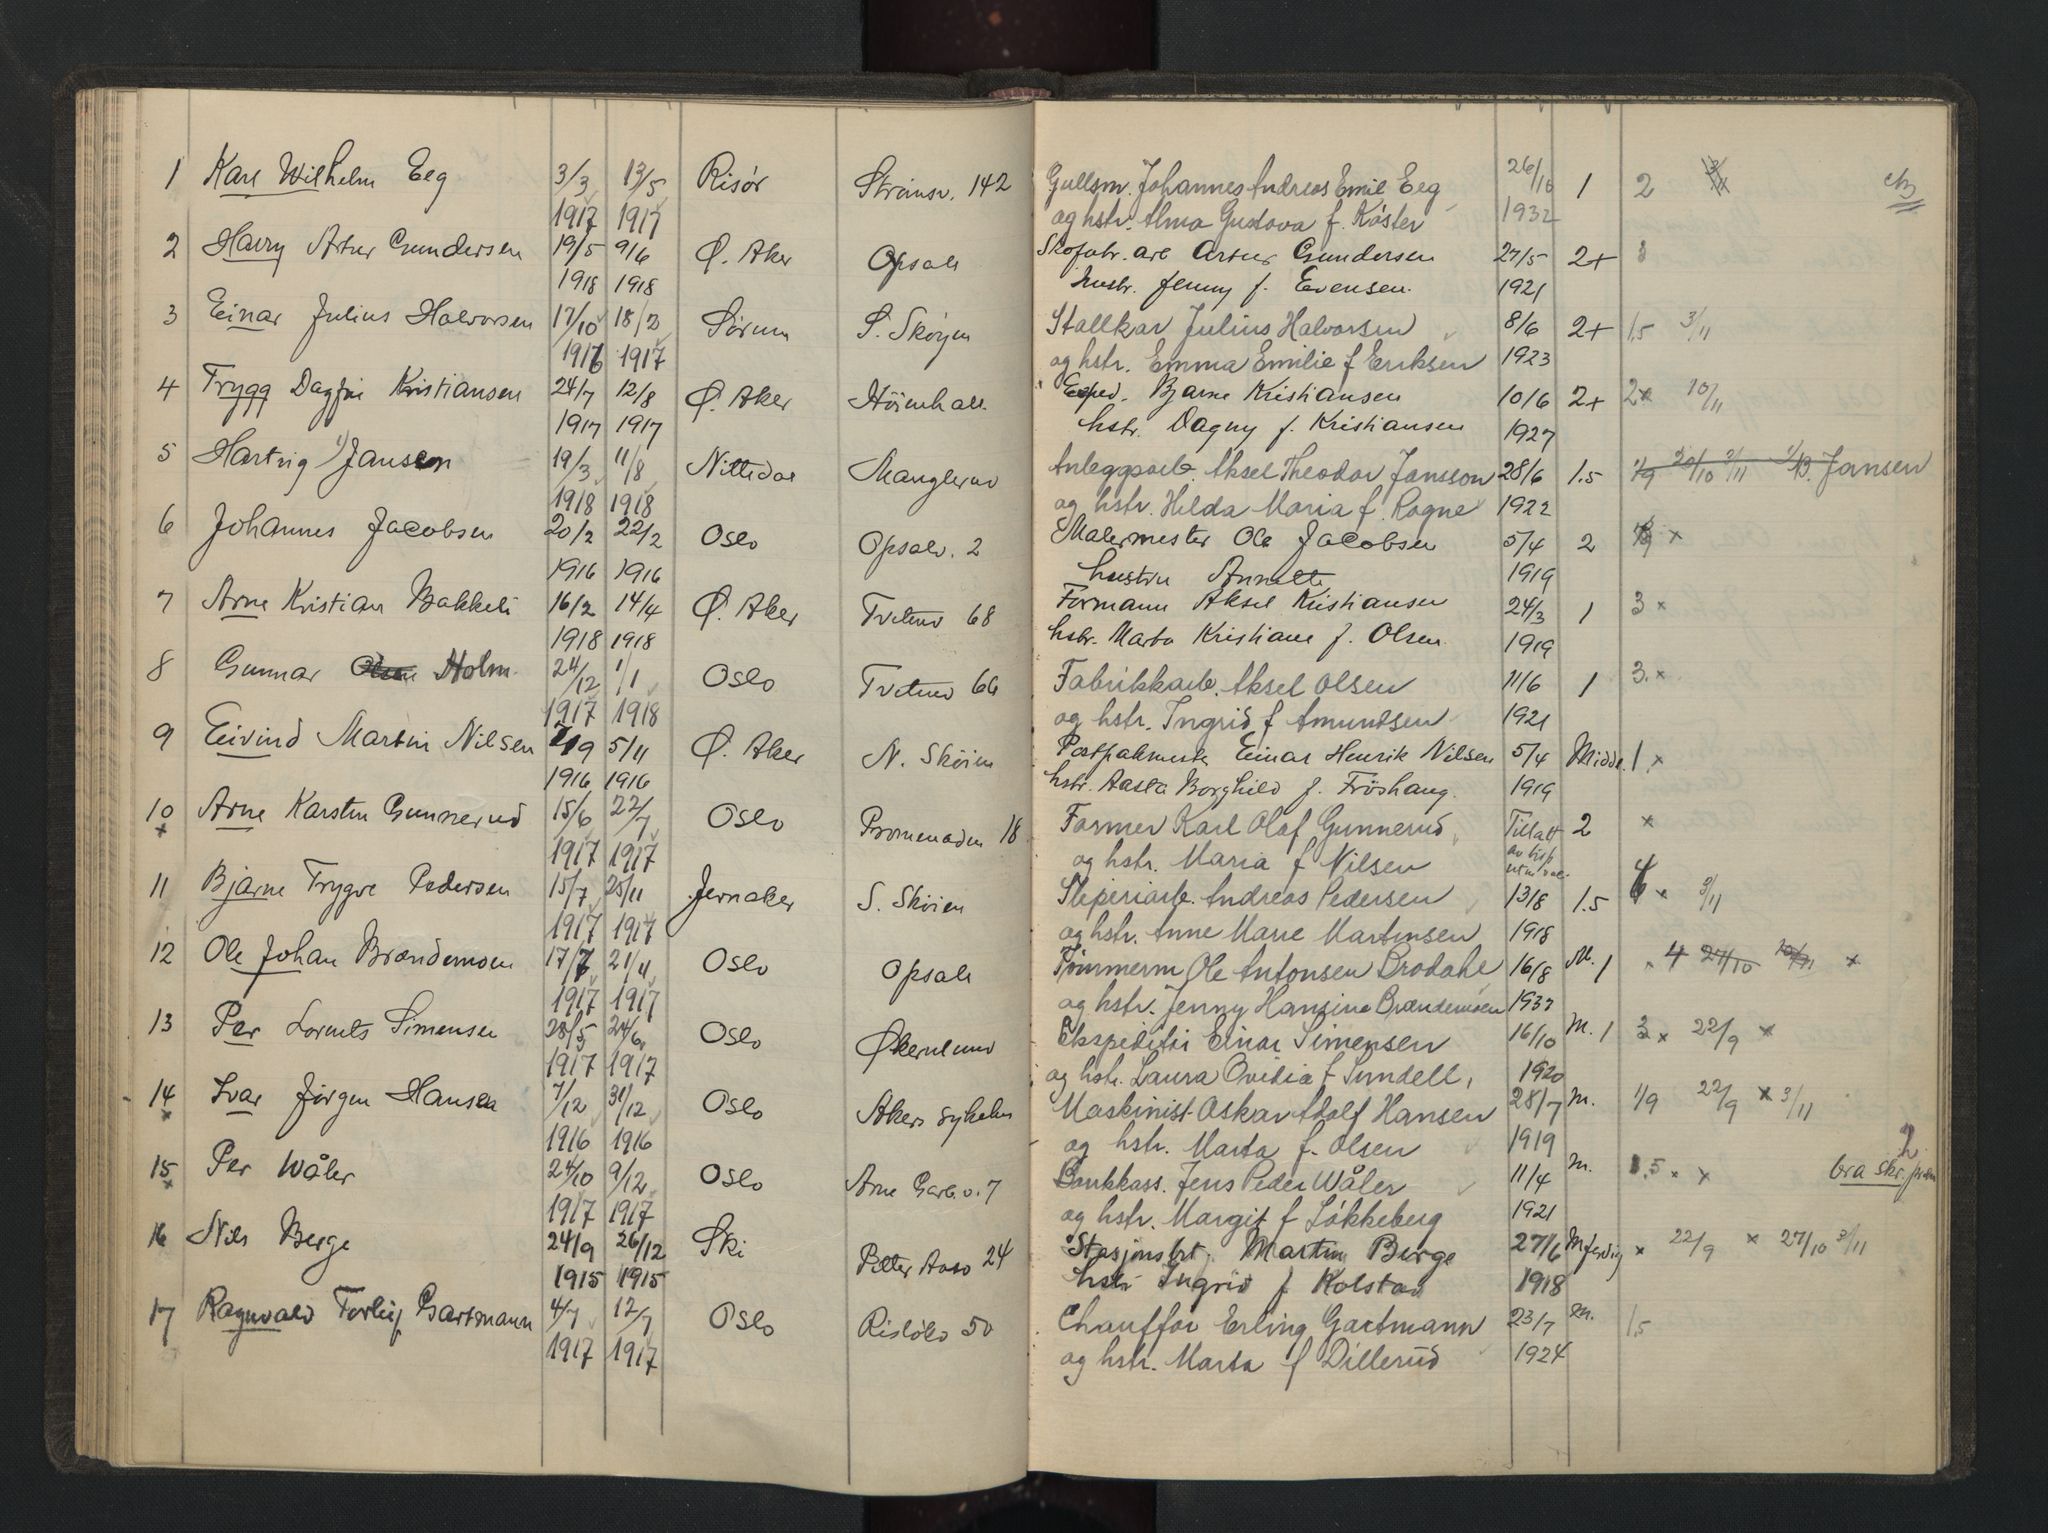 1 Karl Wilhelm Eeg 3/3 13/5 Risör Strömsv. 142 Gullsm. Johannes Andreas Emil Eeg 26/10 1 2
1917 1917 og hstr. Alma Gustava f. Köster 1932
2 Harry Artur Gundersen 19/5 9/6 Ø. Aker Opsal Skofabr. arb Artur Gundersen 27/5 2+ 3
1918 1918 hustr. Jenny f. Evensen. 1921
3 Einar Julius Halvorsen 17/10 18/2 Sörum S. Sköyen Stallkar Julius Halvorsen 8/6 2+ 1,5 3/11
1916 1917 og hstr. Emma Emilie f Eriksen 1923
4 Trygg Dagfin Kristiansen 24/7 12/8 Ø. Aker Höienhall Exped. Bjarne Kristiansen 10/6 2+ 2x 10/11
1917 1917 hstr. Dagny f. Kristiansen 1927
5 Hartvig 1) Jansen 19/3 11/8 Nittedal Manglerud Anleggsarb. Aksel Theodor Jansson 28/6 1.5 1/9 20/10 3/11 1/B. Jansen
1918 1918 og hstr. Hilda Maria f. Ragne 1922
6 Johannes Jacobsen 20/2 22/2 Oslo Opsalv. 2 Malermester Ole Jacobsen 5/4 2 x
1916 1916 hustru Annette 1919
7 Arne Kristian Bakkeli 16/2 14/4 Ø. Aker Tvetenv 68 Formann Aksel Kristiansen 24/3 1 3 x
1918 1918 hstr. Marta Kristiane f. Olsen. 1919
8 Gunnar Olsen Holm. 24/12 1/1 Oslo Tvetenv 66 Fabrikkarb. Aksel Olsen 11/6 1 3. x
1917 1918 og hstr. Ingrid f Amundsen 1921
9 Eivind Martin Nilsen 7/9 5/11 Ø. Aker N. Sköien Postpakmester Einar Henrik Nilsen 5/4 Midd. 1 x
1916 1916 hstr. Aasta Borghild f. Fröshaug. 1919
10 x Arne Karsten Gunnerud 15/6 22/7 Oslo Promenaden 18 Former Karl Olaf Gunnerud Tillatt 2 x
1917 1917 og hstr. Maria f Nilsen av bisp
11 Bjarne Trygve Pedersen 15/7 25/11 Jevnaker S. Sköien Sliperiarb. Andreas Pedersen 13/8 1.5 4 x 3/11
1917 1917 og hstr. Anne Marie Martinsen 1918
12 Ole Johan Brændemoen 17/7 21/4 Oslo Opsal Tömmerm Ole Antonsen Brodahl 16/8 M. 1 4 27/10 10/11 x
1917 1917 og hstr. Jenny Hansine Brændemoen 1937
13 Per Lorents Simensen 28/5 24/6 Oslo Økernlund Ekspeditör Einar Simensen 16/10 M. 1 3 x 22/9 x
1917 1917 og hstr. Laura Ovidia f Sundell, 1920
14 x Ivar Jörgen Hansen 7/12 31/12 Oslo Akers sykehus Maskinist Oskar Adolf Hansen 28/7 M. 1/9 22/9 x 3/11
1916 1916 og hstr. Marta f. Olsen 1919 2
15 x Per Wåler 24/10 9/12 Oslo Arne Garb. v. 7 Bankkass. Jens Peder Wåler 11/4 M. 1.5 x x bra skr. prøve
1917 1917 og hstr. Margit f Lökkeberg 1921
16 Nils Berge 24/9 26/12 Ski Petter Aaso 24 Stasjonsbet. Martin Berge 27/6 M ferdig x 22/9 x 27/10 3/11
1915 1915 hstr Ingrid f Kolstad 1918
17 Ragnvald Torleif Gartmann 4/7 12/7 Oslo Rislökv 50 Chaufför Erling Gartmann 23/7 M. 1.5
1917 1917 og hstr. Marta f Dillerud 1924